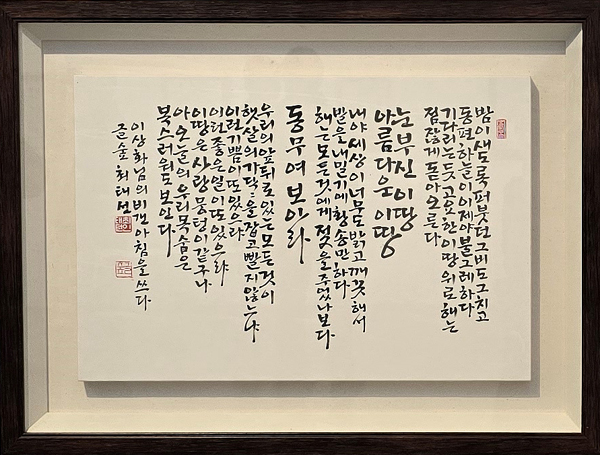 밤이 새도록 퍼붓던 그 비도 그치고
동편 하늘이 이제야 불그레하다
기다리는듯 고요한 이 땅 위로 해는
점잖게 돋아 오른다
눈부신 이 땅
아름다운 이 땅
내야 세상이 너무 밝고 깨끗해서
발을 내밀기에 황송만하다
해는 모든것에게 젖을 주었나보다
동무여 보아라
우리의 앞뒤로 있는 모든것이
햇살의 가닥:을 잡고 빨지 않느냐
이런 기쁨이 또 있으랴
이런 좋은일이 또 있으랴
이 땅은 사랑 뭉텅이 같구나
아 오늘의 우리 목숨은
복스러워도 보인다
이상화님의 비갠 아침을 쓰다
최태선